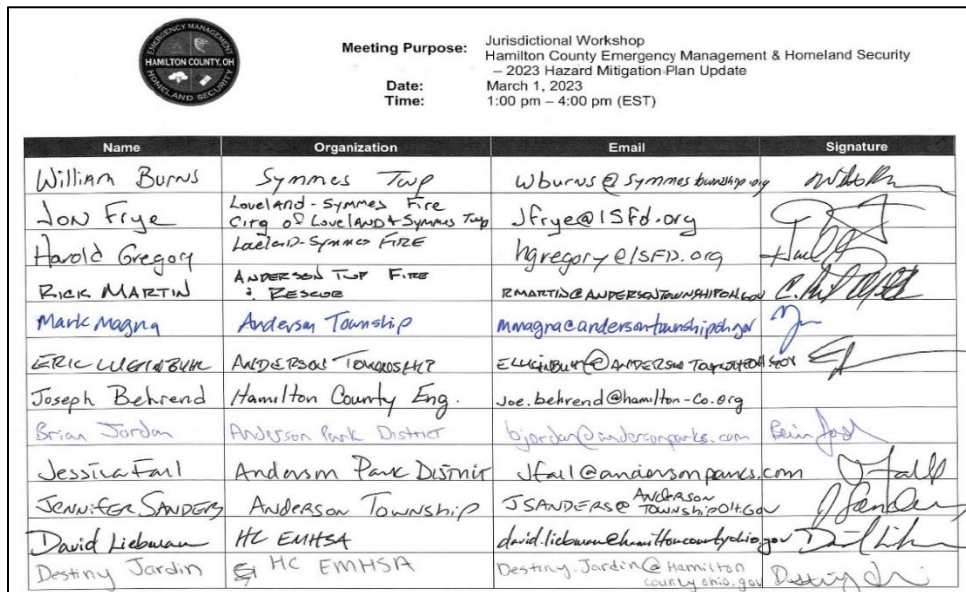 EMERGENCY MANAGEMENT
HAMILTON COUNTY, OH
HOMELAND SECURITY
Meeting Purpose: Jurisdictional Workshop
Hamilton County Emergency Management & Homeland Security
– 2023 Hazard Mitigation Plan Update
Date: March 1, 2023
Time: 1:00 pm – 4:00 pm (EST)
Name Organization Email Signature
William Burns Symmes Twp wburns@symmestownship.org
Jon Frye Loveland-Symmes Fire
City of Loveland & Symmes Twp Jfrye@lSfd.org
Harold Gregory Loveland-Symmes FIRE hgregory@lSFD.org
RICK MARTIN ANDERSON TWP FIRE
& RESCUE RMARTIN@ANDERSONTOWNSHIPOH.GOV
Mark Magna Anderson Township mmagna@andersontownshipoh.gov
ERIC ANDERSON TOWNSHIP
Joseph Behrend Hamilton County Eng. Joe.behrend@hamilton-co.org
Brian Jordan Anderson Park District bjordan@andersonparks.com
Jessica Fail Anderson Park District Jfail@andersonparks.com
Jennifer SANDERS Anderson Township JSANDERS@ANDERSON
TOWNSHIPOH.GOV
David Liebman HC EMHSA david.liebman@hamiltoncountyohio.gov
Destiny Jardin HC EMHSA Destiny.Jardin@Hamilton
countyohio.gov